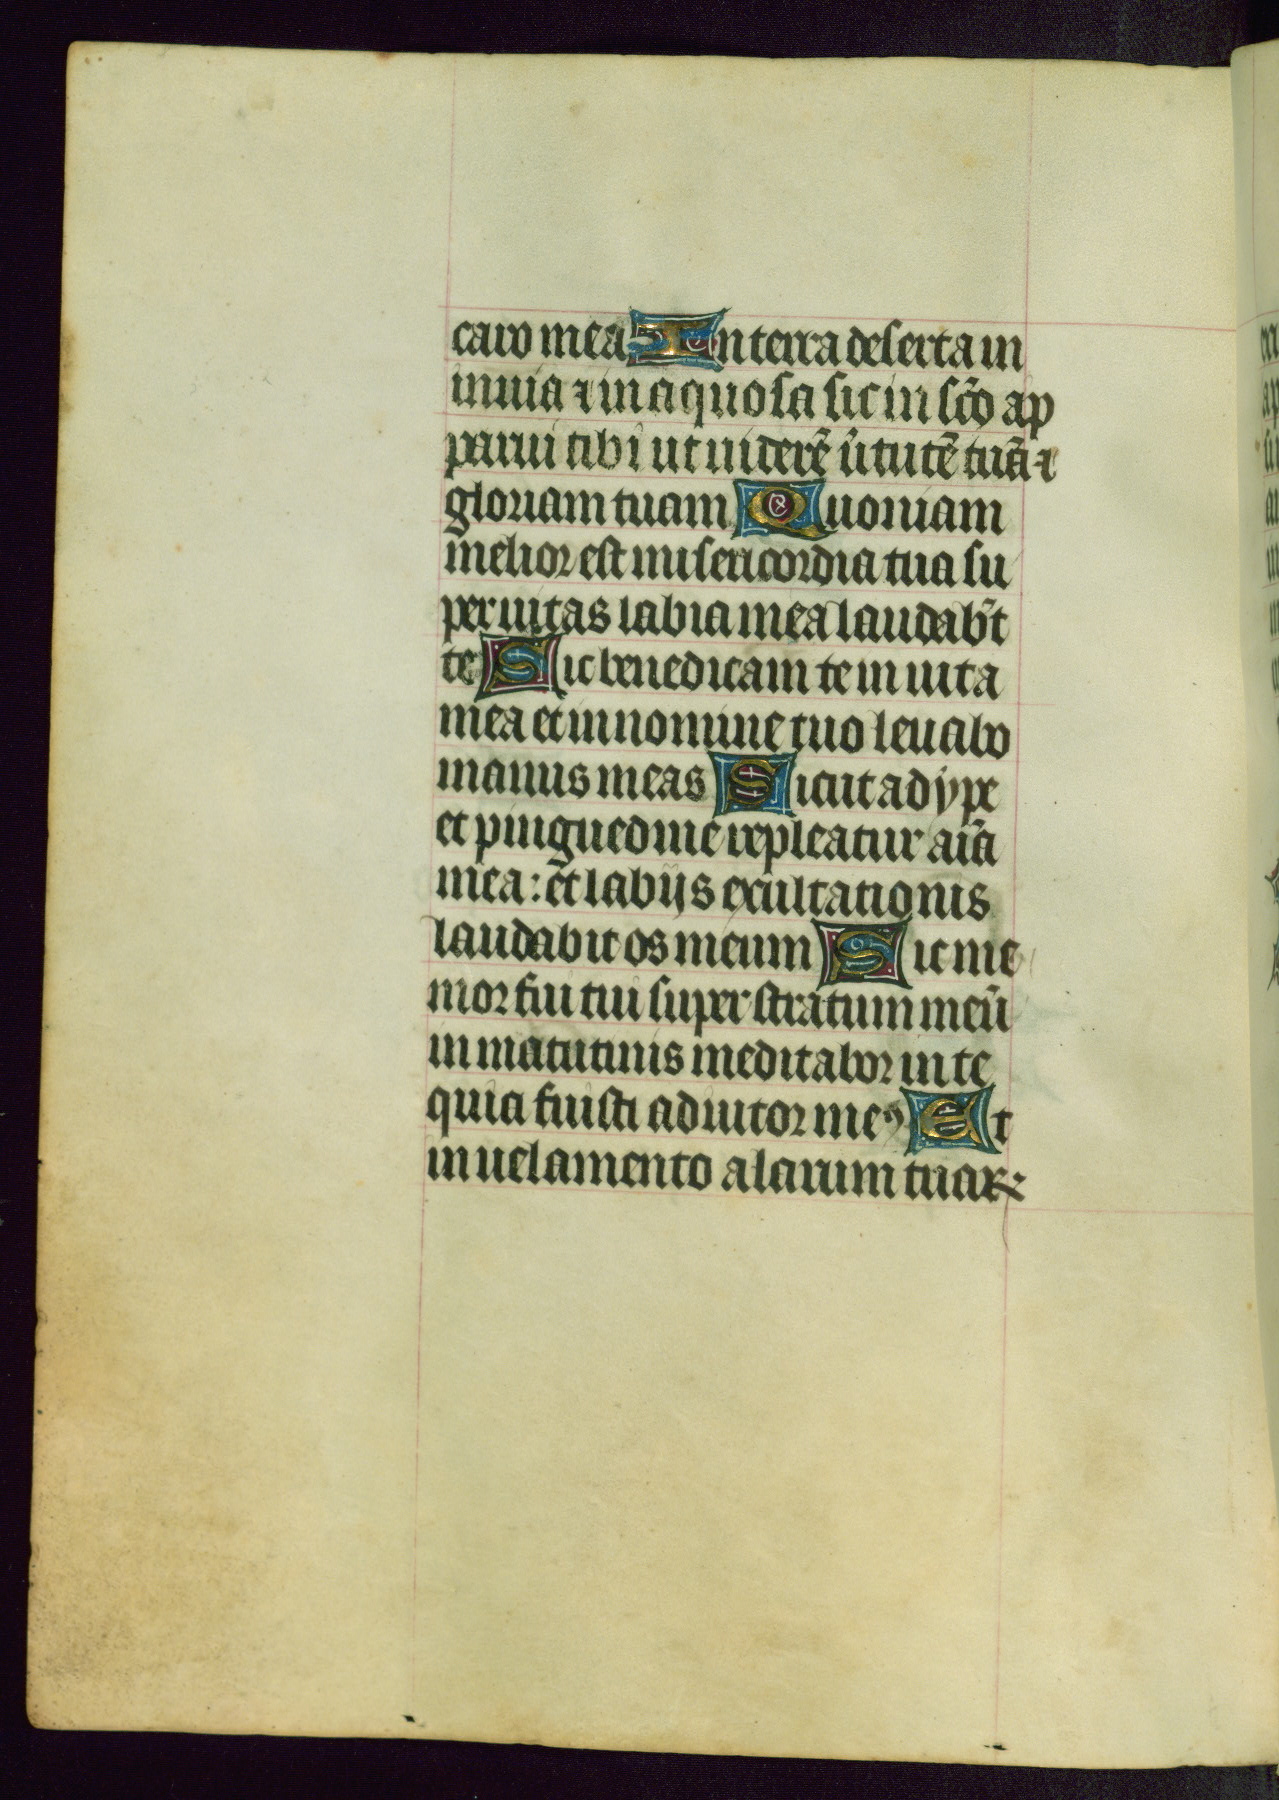 caro mea In terra deserta in
inuia ⁊ inaquosa sic in sc̄o ap
parui tibi ut uiderē ūtutē tuā ⁊
gloriam tuam Quoniam
melior est misericordia tua su
per uitas labia mea laudab̄t
te Sic benedicam te in uita
mea et in nomine tuo leuabo
manus meas Sicut adype
et pinguedine repleatur aīa
mea: et labijs exultationis
laudabit os meum Sic me
mor fui tui super stratum meū
in matutinis meditabor in te
quia fuisti adiutor meꝰ Et
in uelamento alarum tuaꝝ